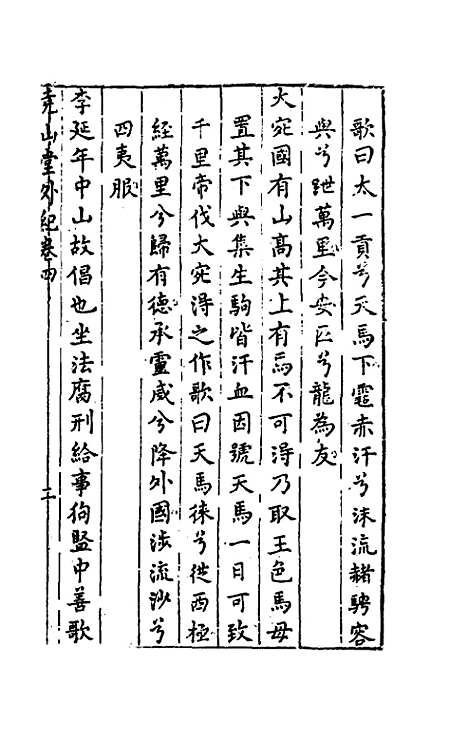 歌曰太一貢兮天馬下霑赤汗兮沫流赭騁容
與兮跇萬里今安匹兮龍為友
大宛國有山高其上有馬不可得乃取五色馬母
置其下與集生駒皆汗血因號天馬一日可致
千里帝伐大宛得之作歌曰天馬徠兮從西極
經萬里兮歸有德承靈威兮降外國涉流沙兮
四夷服
李延年中山故倡也坐法腐刑給事狗監中善歌
堯山堂外紀卷四 二